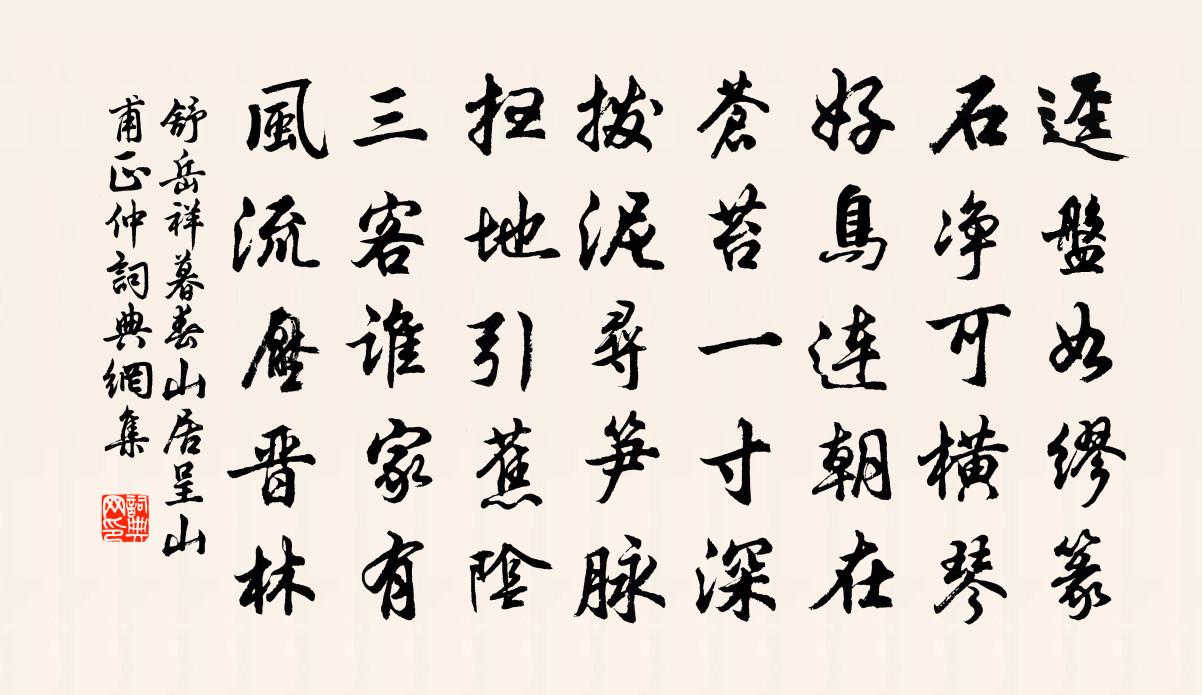 逕盤如繆篆
石净可横琴
好鳥連朝在
蒼苔一寸深
拨泥尋笋脉
扫地引蕉陰
三客谁家有
風流壓晋林
舒岳祥暮春山居呈山
甫正仲詞典網集
詞典网印